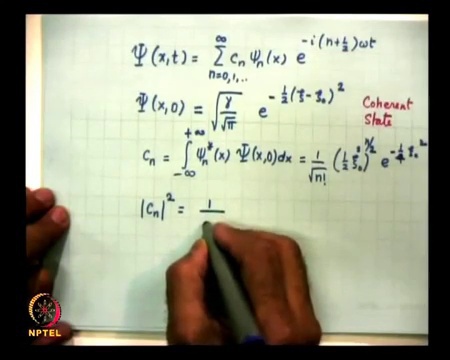 Ψ(x,t) = ∑_{n=0,1,..}^{∞} c_n ψ_n(x) e^{-i(n+½)ωt}
Ψ(x,0) = √(γ/√π) e^{-½(ξ-ξ₀)²}
Coherent
State
c_n = ∫_{-∞}^{+∞} ψ_n*(x) Ψ(x,0)dx = 1/√n! (½ ξ₀²)^{n/2} e^{-¼ξ₀²}
|c_n|² = 1
NPTEL